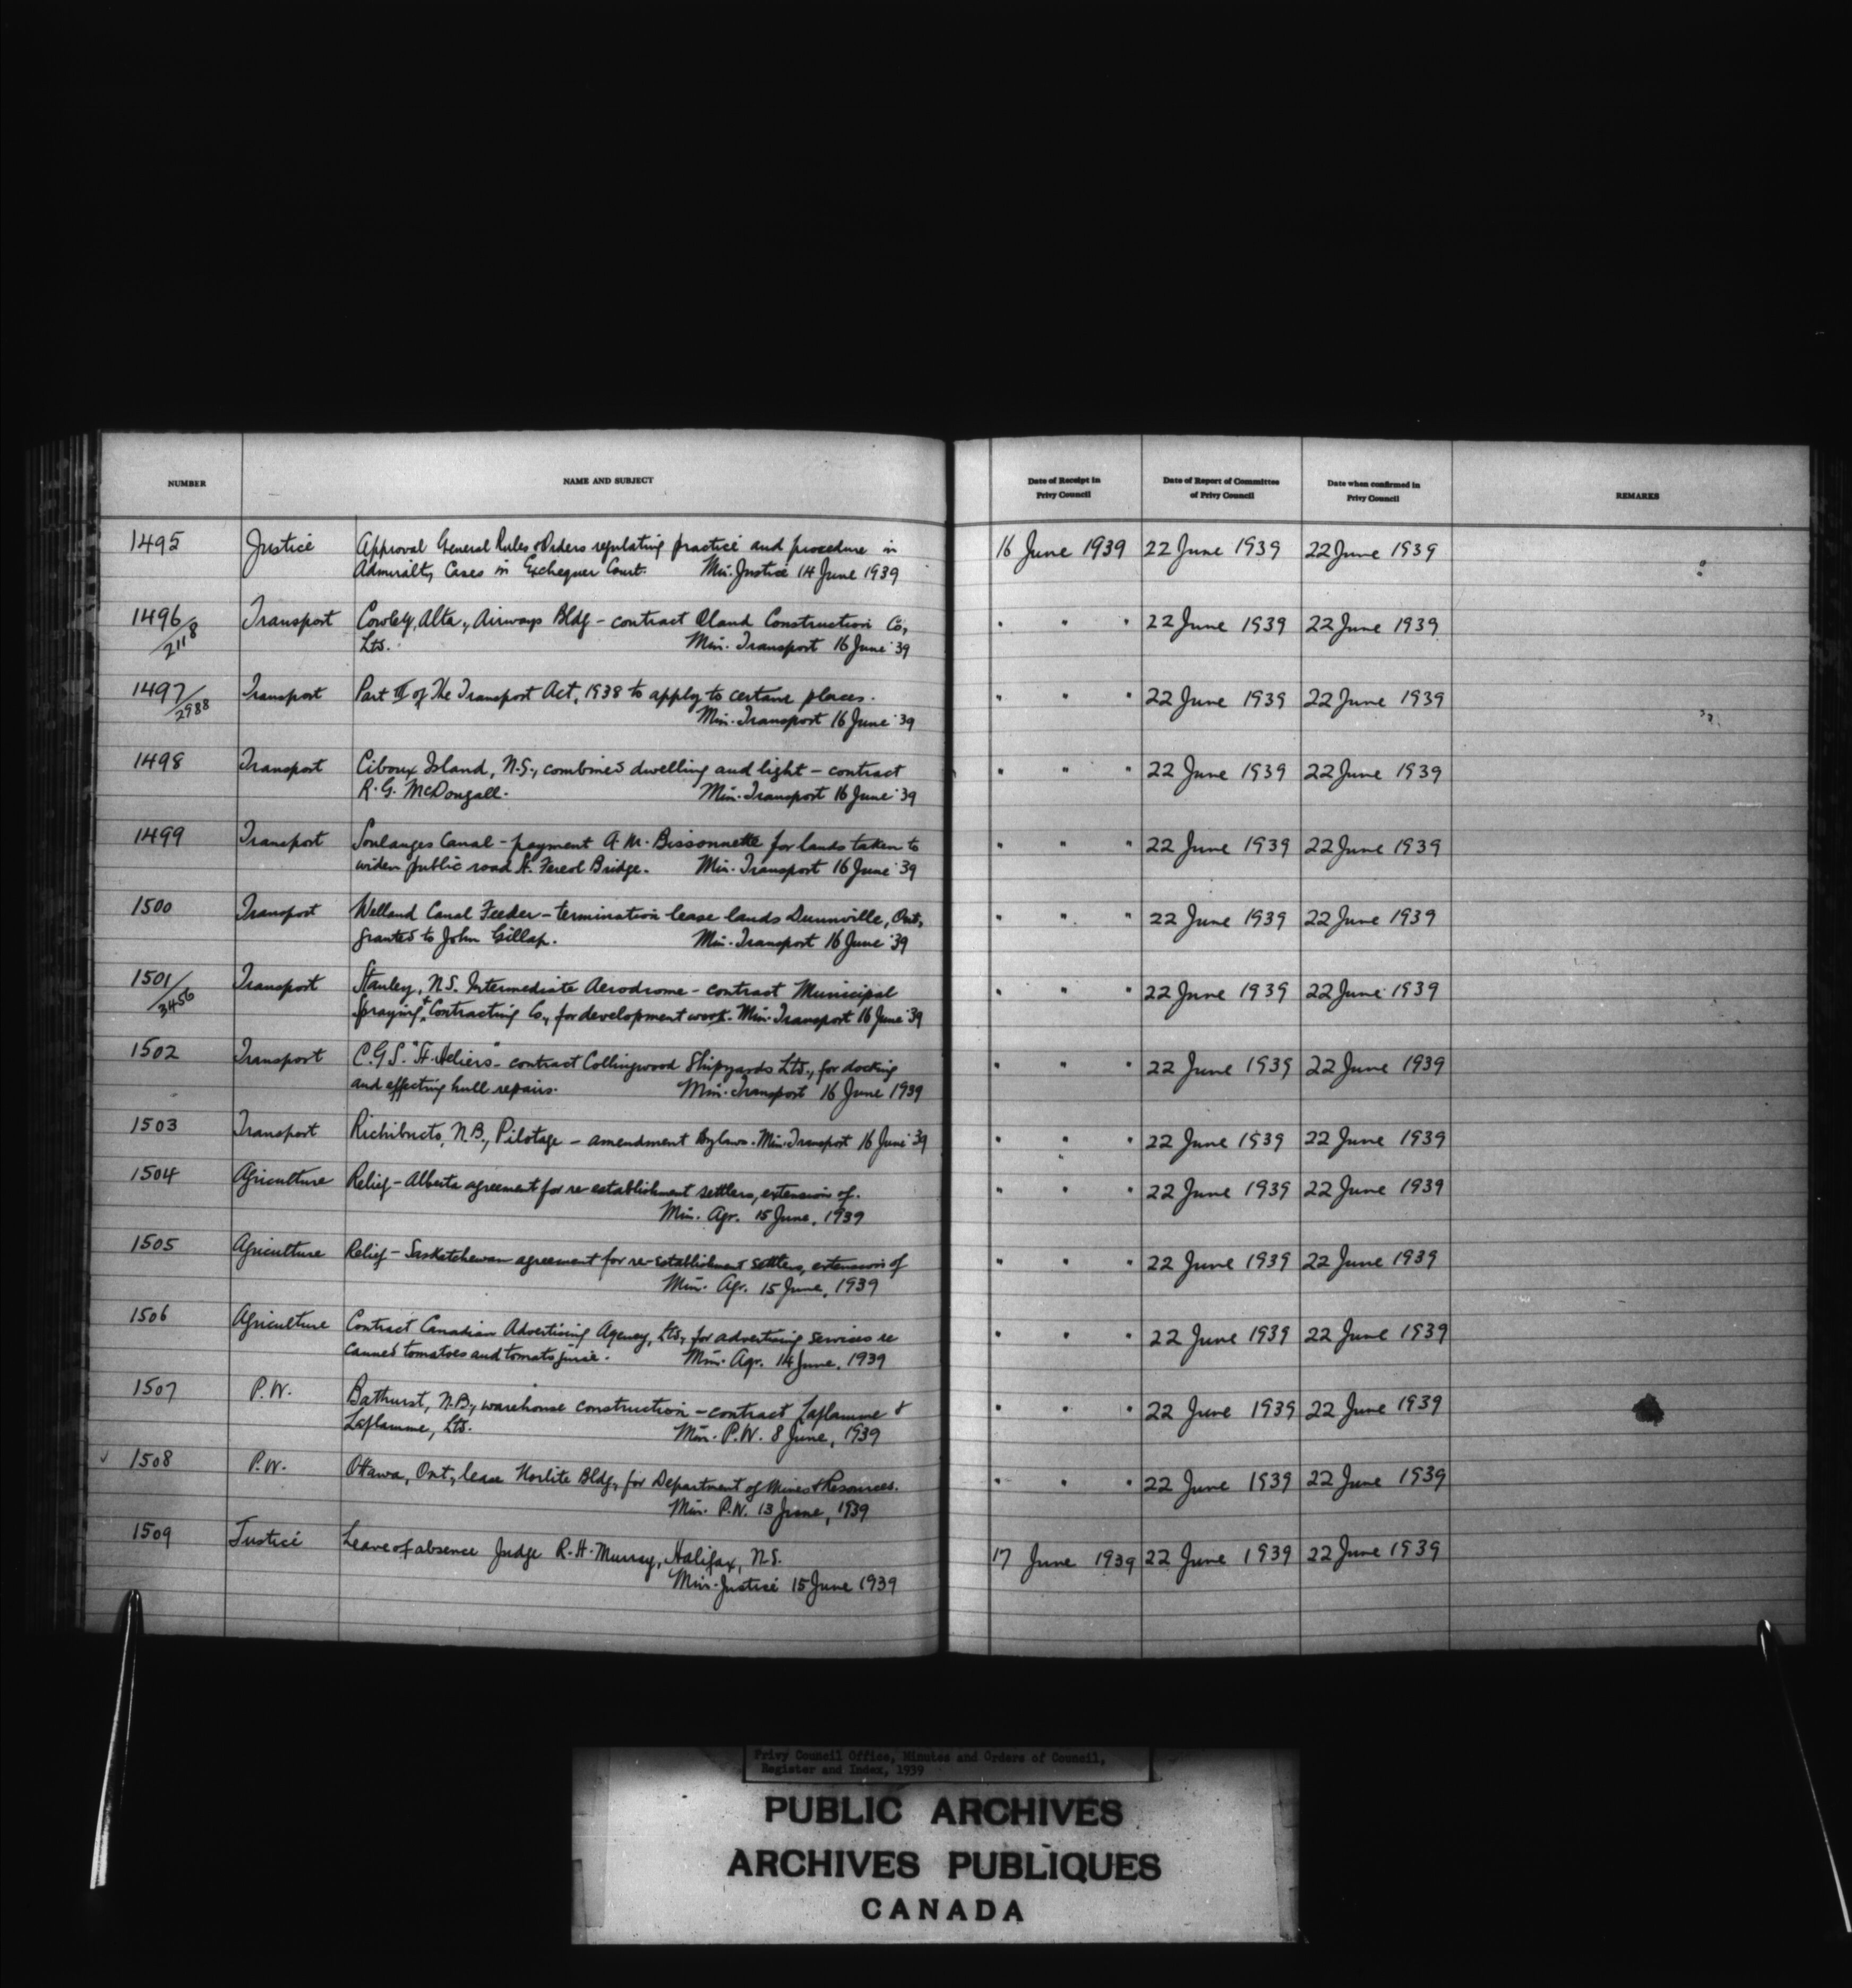 NUMBER NAME AND SUBJECT Date of Receipt in Privy Council Date of Report of Committee of Privy Council Date when confirmed in Privy Council REMARKS
1495 Justice Approval General Rules & Orders regulating practice and procedure in 16 June 1939 22 June 1939 22 June 1939
Admiralty Cases in Exchequer Court. Min. Justice 14 June 1939
1496/2118 Transport Cowley, Alta., Airways Bldg - contract Oland Construction Co., " " " 22 June 1939 22 June 1939
Ltd. Min. Transport 16 June '39
1497/2988 Transport Part II of The Transport Act, 1938 to apply to certain places. " " " 22 June 1939 22 June 1939
Min. Transport 16 June '39
1498 Transport Ciboux Island, N.S., combined dwelling and light - contract " " " 22 June 1939 22 June 1939
R.G. McDougall. Min. Transport 16 June '39
1499 Transport Soulanges Canal - payment A.M. Bissonnette for lands taken to " " " 22 June 1939 22 June 1939
widen public road St. Fereol Bridge. Min. Transport 16 June '39
1500 Transport Welland Canal Feeder - termination lease lands Dunnville, Ont., " " " 22 June 1939 22 June 1939
granted to John Gillap. Min. Transport 16 June '39
1501/3456 Transport Stanley, N.S. Intermediate Aerodrome - contract Municipal " " " 22 June 1939 22 June 1939
Spraying + Contracting Co., for development work. Min. Transport 16 June '39
1502 Transport C.G.S. "St. Heliers" - contract Collingwood Shipyards Ltd., for docking " " " 22 June 1939 22 June 1939
and effecting hull repairs. Min. Transport 16 June 1939
1503 Transport Richibucto, N.B., Pilotage - amendment Bylaws. Min. Transport 16 June '39 " " " 22 June 1939 22 June 1939
1504 Agriculture Relief - Alberta agreement for re establishment settlers, extension of. " " " 22 June 1939 22 June 1939
Min. Agr. 15 June, 1939
1505 Agriculture Relief - Saskatchewan agreement for re-establishment settlers, extension of " " " 22 June 1939 22 June 1939
Min. Agr. 15 June, 1939
1506 Agriculture Contract Canadian Advertising Agency, Ltd., for advertising services re " " " 22 June 1939 22 June 1939
canned tomatoes and tomato juice. Min. Agr. 14 June, 1939
1507 P.W. Bathurst, N.B., warehouse construction - contract Laflamme & " " " 22 June 1939 22 June 1939
Laflamme, Ltd. Min. P.W. 8 June, 1939
✓ 1508 P.W. Ottawa, Ont., lease Norlite Bldg, for Department of Mines & Resources. " " " 22 June 1939 22 June 1939
Min. P.W. 13 June, 1939
1509 Justice Leave of absence Judge R.H. Murray, Halifax, N.S. 17 June 1939 22 June 1939 22 June 1939
Min. Justice 15 June 1939
Privy Council Office, Minutes and Orders of Council,
Register and Index, 1939
PUBLIC ARCHIVES
ARCHIVES PUBLIQUES
CANADA